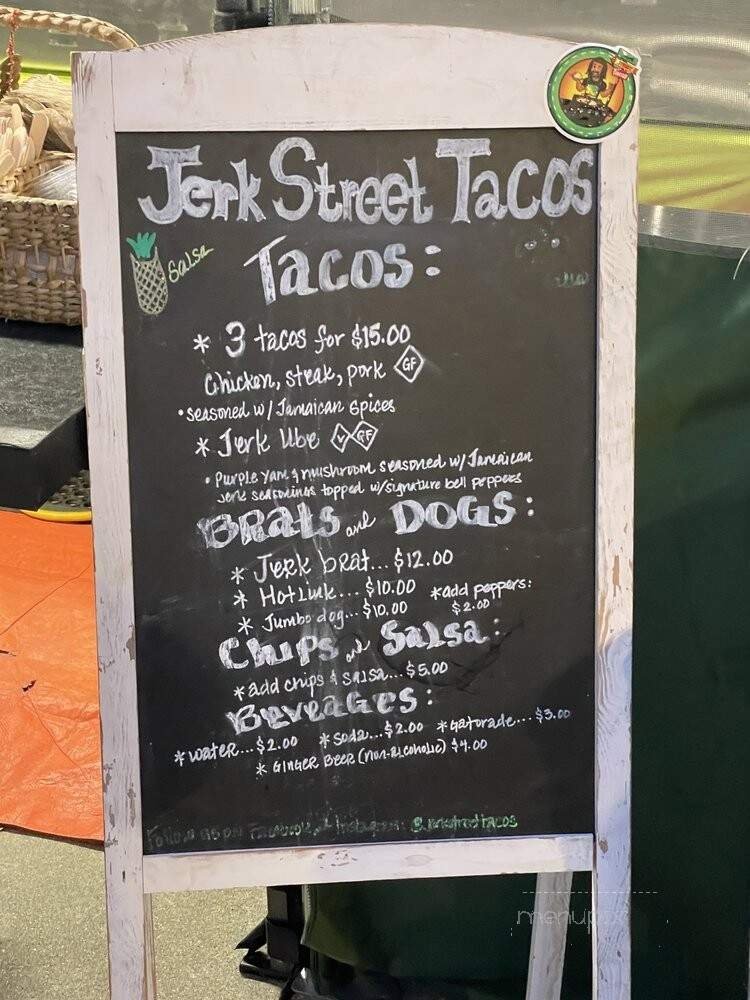 Jerk Street Tacos
Salsa
Tacos:
* 3 tacos for $15.00
Chicken, steak, pork GF
• seasoned w/ Jamaican spices
* Jerk Ube V GF
• Purple yam & mushroom seasoned w/ Jamaican
Jerk seasonings topped w/ signature bell peppers
Brats and DOGS:
* Jerk brat... $12.00
* Hot Link... $10.00 *add peppers:
* Jumbo dog... $10.00 $2.00
Chips and Salsa:
* add chips & salsa... $5.00
Beverages:
* water... $2.00 * soda... $2.00 * Gatorade... $3.00
* GINGER BEER (non-alcoholic) $4.00
Follow us on Facebook and Instagram: @jerkstreettacos
menupix